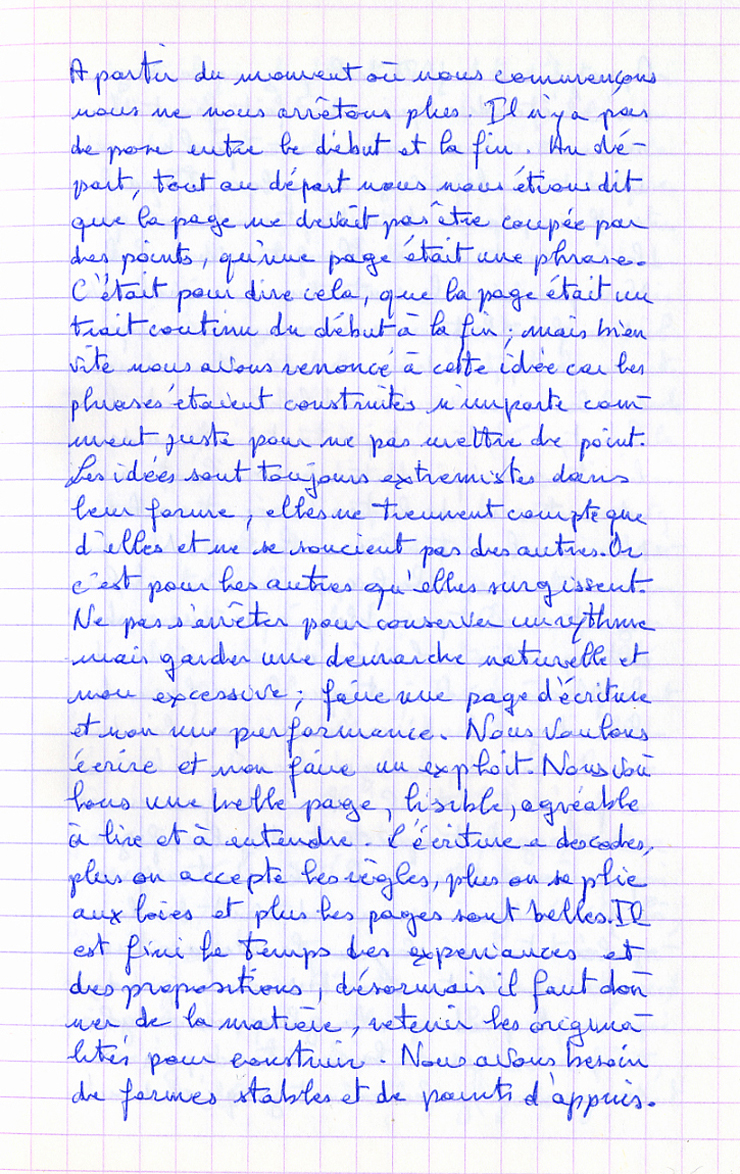 A partir du moment où nous commençons
nous ne nous arrêtons plus. Il n'y a pas
de pose entre le début et la fin. Au dé-
part, tout au départ nous nous étions dit
que la page ne devait pas être coupée par
des points, qu'une page était une phrase.
C'était pour dire cela, que la page était un
trait continu du début à la fin ; mais bien
vite nous avons renoncé à cette idée car les
phrases étaient construites n'importe com-
ment juste pour ne pas mettre de point.
Les idées sont toujours extremistes dans
leur forme, elles ne tiennent compte que
d'elles et ne se soucient pas des autres. Or
c'est pour les autres qu'elles surgissent.
Ne pas s'arrêter pour conserver un rythme
mais garder une démarche naturelle et
non excessive ; faire une page d'écriture
et non une performance. Nous voulons
écrire et non faire un exploit. Nous vou
lons une belle page, lisible, agréable
à lire et à entendre. L'écriture a des codes,
plus on accepte les règles, plus on se plie
aux loies et plus les pages sont belles. Il
est fini le temps des experiances et
des propositions, désormais il faut don-
ner de la matière, retenir les origina-
lités pour construir. Nous avons besoin
de formes stables et de points d'appuis.